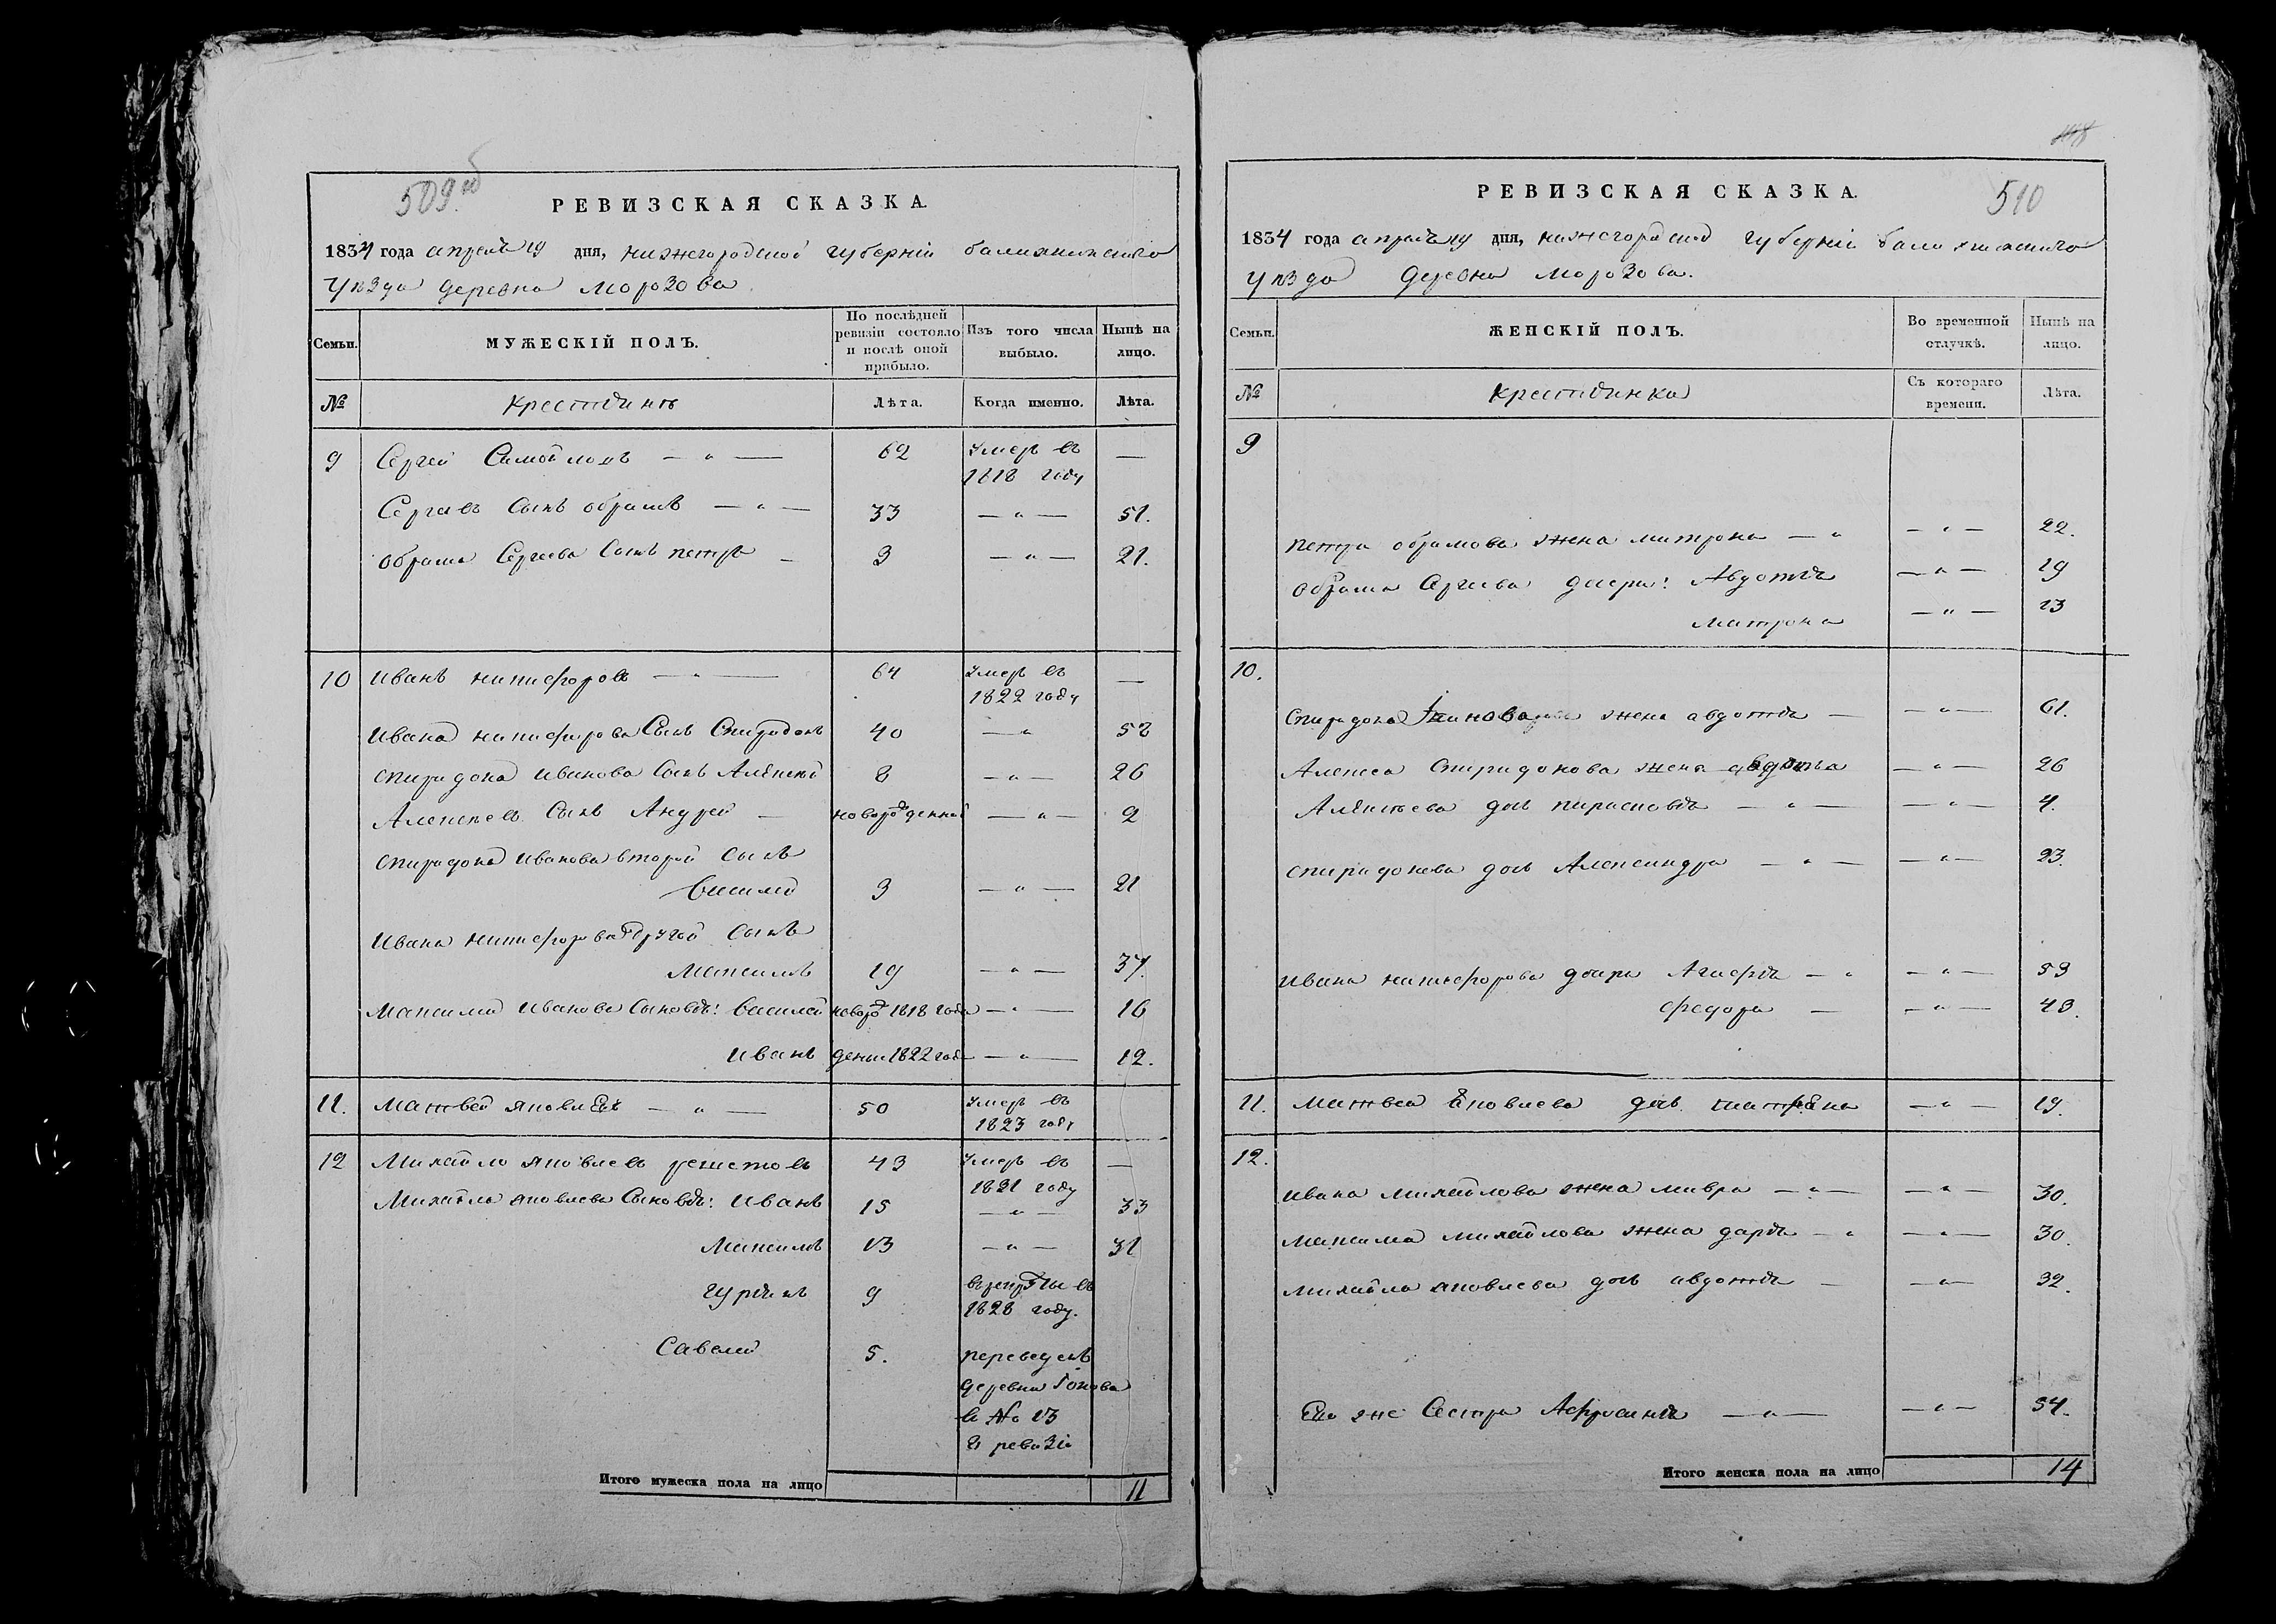 509 об
РЕВИЗСКАЯ СКАЗКА.
1834 года апреля 19 дня, нижегородской губерніи балахнинскаго
уѣзда деревна Морозова.
Семьи. МУЖЕСКІЙ ПОЛЪ. По послѣдней ревизіи состояло и послѣ оной прибыло. Изъ того числа выбыло. Нынѣ на лицо.
№ Крестьянѣ Лѣта. Когда именно. Лѣта.
9 Сергей Самойловъ — „ — 62 Умеръ въ 1818 году —
Сергаевъ Сынъ обрамъ — „ — 33 — „ — 51.
обрама Сергеева Сынъ петръ — 3 — „ — 21.
10 Иванъ никифоровъ — „ — 64 Умеръ въ 1822 году —
Ивана никифорова Сынъ Спиридонъ 40 — „ 58
Спиридона Иванова Сынъ Алексей 8 — „ — 26
Алексеевъ Сынъ Андрей — новорожденной — „ — 2
Спиридона Иванова второй Сынъ
Василей 3 — „ — 21
Ивана никифорова другой Сынъ
Максимъ 19 — „ — 37.
Максима Иванова Сыновья: Василей новорож 1818 года — „ — 16
Иванъ денны 1822 года — „ — 12.
11. Матвей яковлевъ — „ — 50 Умеръ въ 1823 году
12 Михайло яковлевъ решетовъ 43 Умеръ въ 1821 году —
Михайла яковлева Сыновья: Иванъ 15 — „ — 33
Максимъ 13 — „ — 31
гурьянъ 9 въ рекруты въ 1828 году.
Савелей 5. переведенъ
деревна
в № 13
ревизіи
Итого мужеска пола на лицо 11
510
РЕВИЗСКАЯ СКАЗКА.
1834 года апреля 19 дня, нижегородской губерніи балахнинскаго
уѣзда деревна Морозова.
Семьи. ЖЕНСКІЙ ПОЛЪ. Во временной отлучкѣ. Нынѣ на лицо.
№ Крестьянка Съ котораго времени. Лѣта.
9
петра обрамова жена матрона — „ — „ — 22.
обрама Сергеева дочери: Авдотья — „ — 19
матрона — „ — 13
10.
Спиридона Иванова жена авдотья — — „ — 61.
Алексея Спиридонова жена авдотья — „ — 26
Алексеева дочь парасковья — „ — — „ — 4.
Спиридонова дочь Александра — „ — — „ — 23.
Ивана никифорова дочери Агафья — „ — „ — 53
федора — — „ — 43.
11. Матвея Яковлева дочь матрена — „ — 19.
12.
Ивана михайлова жена мавра — „ — — „ — 30.
Максима михайлова жена дарья — „ — „ — 30.
Михайла яковлева дочь авдотья — — „ — 32.
Ево же Сестра Афросинья — „ — — „ — 54.
Итого женска пола на лицо 14